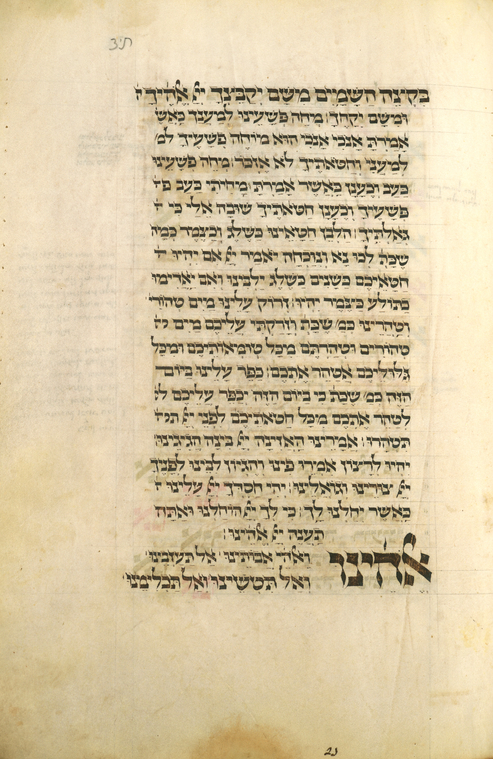 בקצה השמים משם יקבצך יי אלהיך
ומשם יקחך מחה פשעינו למענך כאש
אמרת אנכי אנכי הוא מוחה פשעיך למ
למעני וחטאתיך לא אזכר מחה פשעינו
כעב וכענן כאשר אמרת מחיתי כעב פ
פשעיך וכענן חטאתיך שובה אלי כי
גאלתיך הלבן חטאינו כשלג וכצמר כמה
שכת לכו נא ונוכחה יאמר יי אם יהיו ח
חטאיכם כשנים כשלג ילבינו ואם יאדימו
כתולע כצמר יהיו זרוק עלינו מים טהור
וטהרינו כמ שכת וזרקתי עליכם מים
טהורים וטהרתם מכל טומאותיכם ומכל
גלוליכם אטהר אתכם כפר עלינו ביום
הזה כמ שכת כי ביום הזה יכפר עליכם ל
לטהר אתכם מכל חטאתיכם לפני יי
תטהרו אמרינו האזינה יי בינה הגיגינו
יהיו לרצון אמרי פינו והגיון לבינו לפניך
יי צורינו וגואלינו יהי חסדך יי עלינו
כאשר יחלנו לך כי לך יי הוחלנו ואתה
תענה יי אלהינו
אלהינו ואלהי אבותינו אל תעזבנו
ואל תטשינו ואל תכלימנו
23